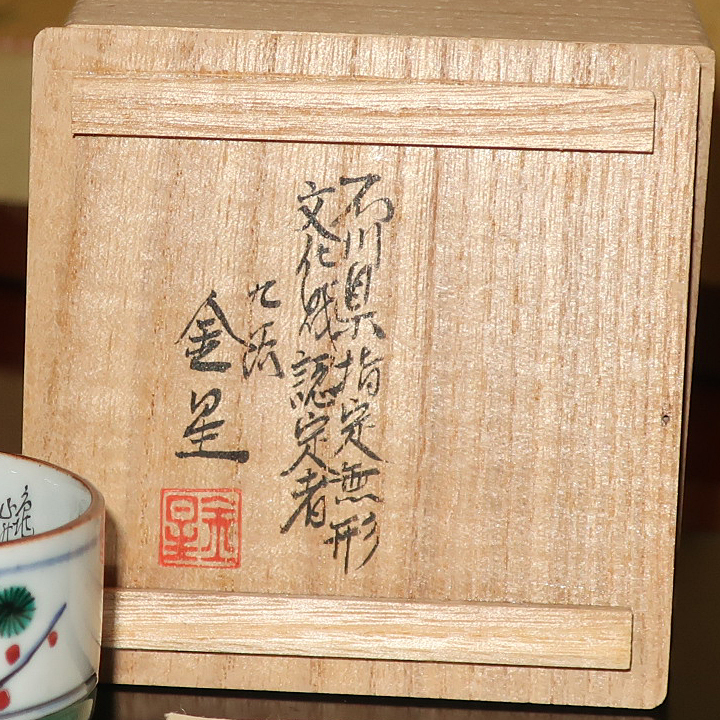 石川県指定無形
文化財認定者
九谷
金星
金星